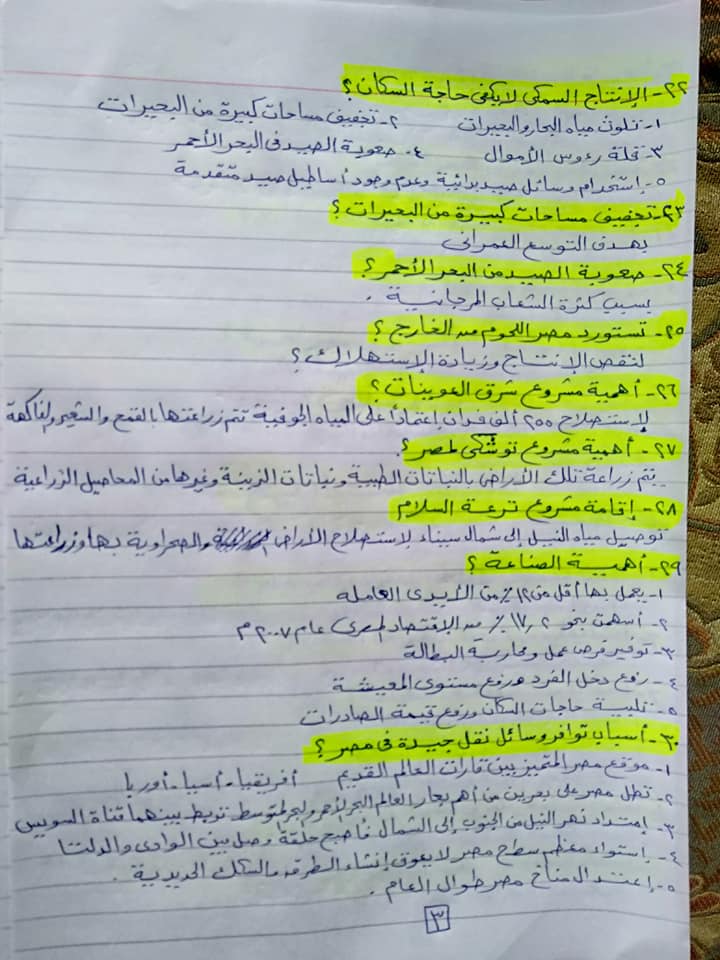 ٢٢- الإنتاج السمكى لا يكفى حاجة السكان؟
١- تلوث مياه البحار والبحيرات ٢- تجفيف مساحات كبيرة من البحيرات
٣- قلة رءوس الأموال ٤- صعوبة الصيد فى البحر الأحمر
٥- إستخدام وسائل صيد بدائية وعدم وجود أساطيل صيد متقدمة
٢٣- تجفيف مساحات كبيرة من البحيرات؟
بهدف التوسع العمرانى
٢٤- صعوبة الصيد من البحر الأحمر؟
بسبب كثرة الشعاب المرجانية .
٢٥- تستورد مصر اللحوم من الخارج؟
لنقص الإنتاج وزيادة الإستهلاك؟
٢٦- أهمية مشروع شرق العوينات؟
لإستصلاح ٢٥٥ ألف فدان إعتماداً على المياه الجوفية تتم زراعتها بالقمح والشعير والفاكهة
٢٧- أهمية مشروع توشكى لمصر؟
يتم زراعة تلك الأراضى بالنباتات الطبية ونباتات الزينة وغيرها من المحاصيل الزراعية
٢٨- إقامة مشروع ترعة السلام
توصيل مياه النيل إلى شمال سيناء لإستصلاح الأراضى والصحراوية بها وزراعتها
٢٩- أهمية الصناعة؟
١- يعمل بها أقل من ١٢٪ من الأيدى العامله
٢- أسهمت بنحو ١٧,٢٪ من الاقتصاد المصرى عام ٢٠٠٧م
٣- توفير فرص عمل ومحاربة البطالة
٤- رفع دخل الفرد ورفع مستوى المعيشة
٥- تلبية حاجات السكان ورفع قيمة الصادرات
٣٠- أسباب توافر وسائل نقل جيدة فى مصر؟
١- موقع مصر المتميز بين قارات العالم القديم أفريقيا - أسيا - أوربا
٢- تطل مصر على بحرين من أهم بحار العالم البحر الأحمر والبحر المتوسط تربط بينهما قناة السويس
٣- إمتداد نهر النيل من الجنوب إلى الشمال فأصبح حلقة وصل بين الوادى والدلتا
٤- إستواء معظم سطح مصر لا يعوق إنشاء الطرق والسكك الحديدية .
٥- إعتدال مناخ مصر طوال العام .
٣